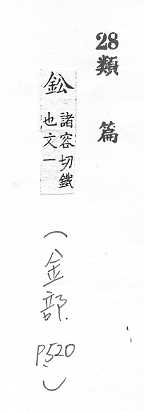 28類篇
鈆 諸容切鐵
也文一
(金部 P.520)